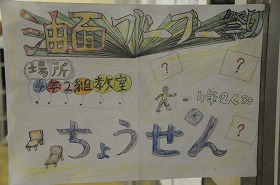 油面ブーブー祭
場所
4年2組教室
?
?
?
?
4年2くみ
ちょうせん